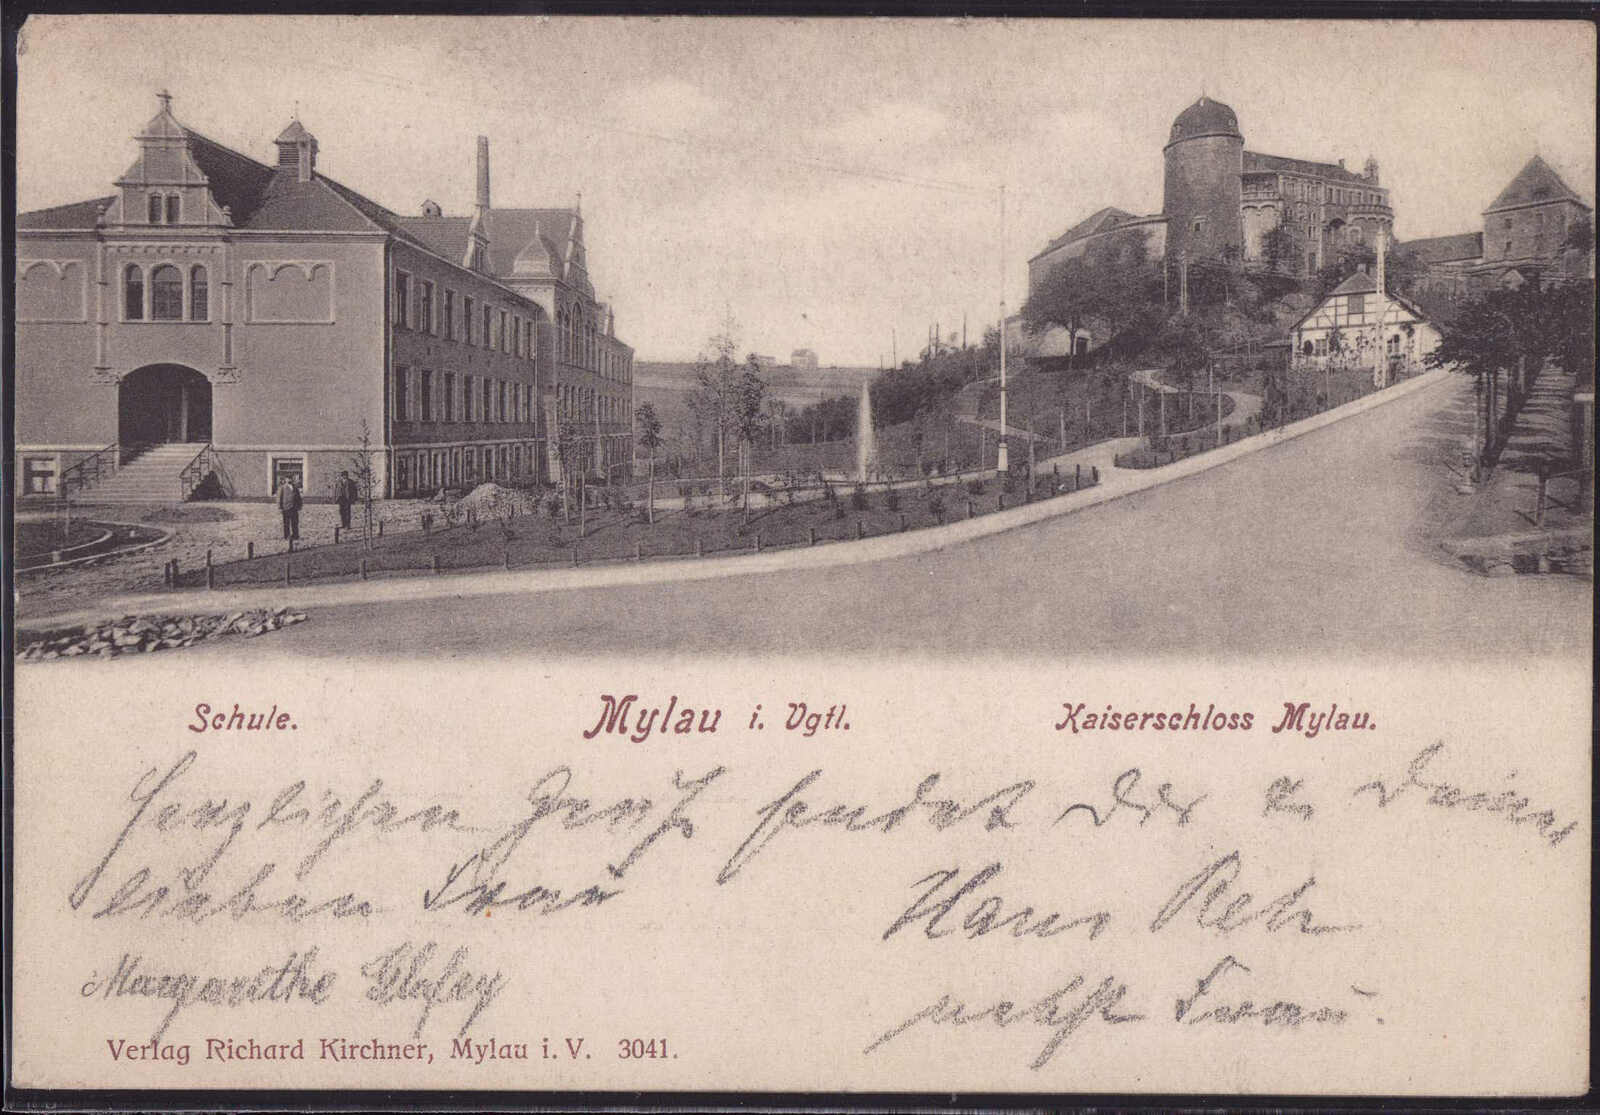 Schule.
Mylau i. Vgtl.
Kaiserschloss Mylau.
Herzlichen Gruß sendet Dir u. Deiner
lieben Frau
Hans
nebst Frau.
Margarethe
Verlag Richard Kirchner, Mylau i. V. 3041.